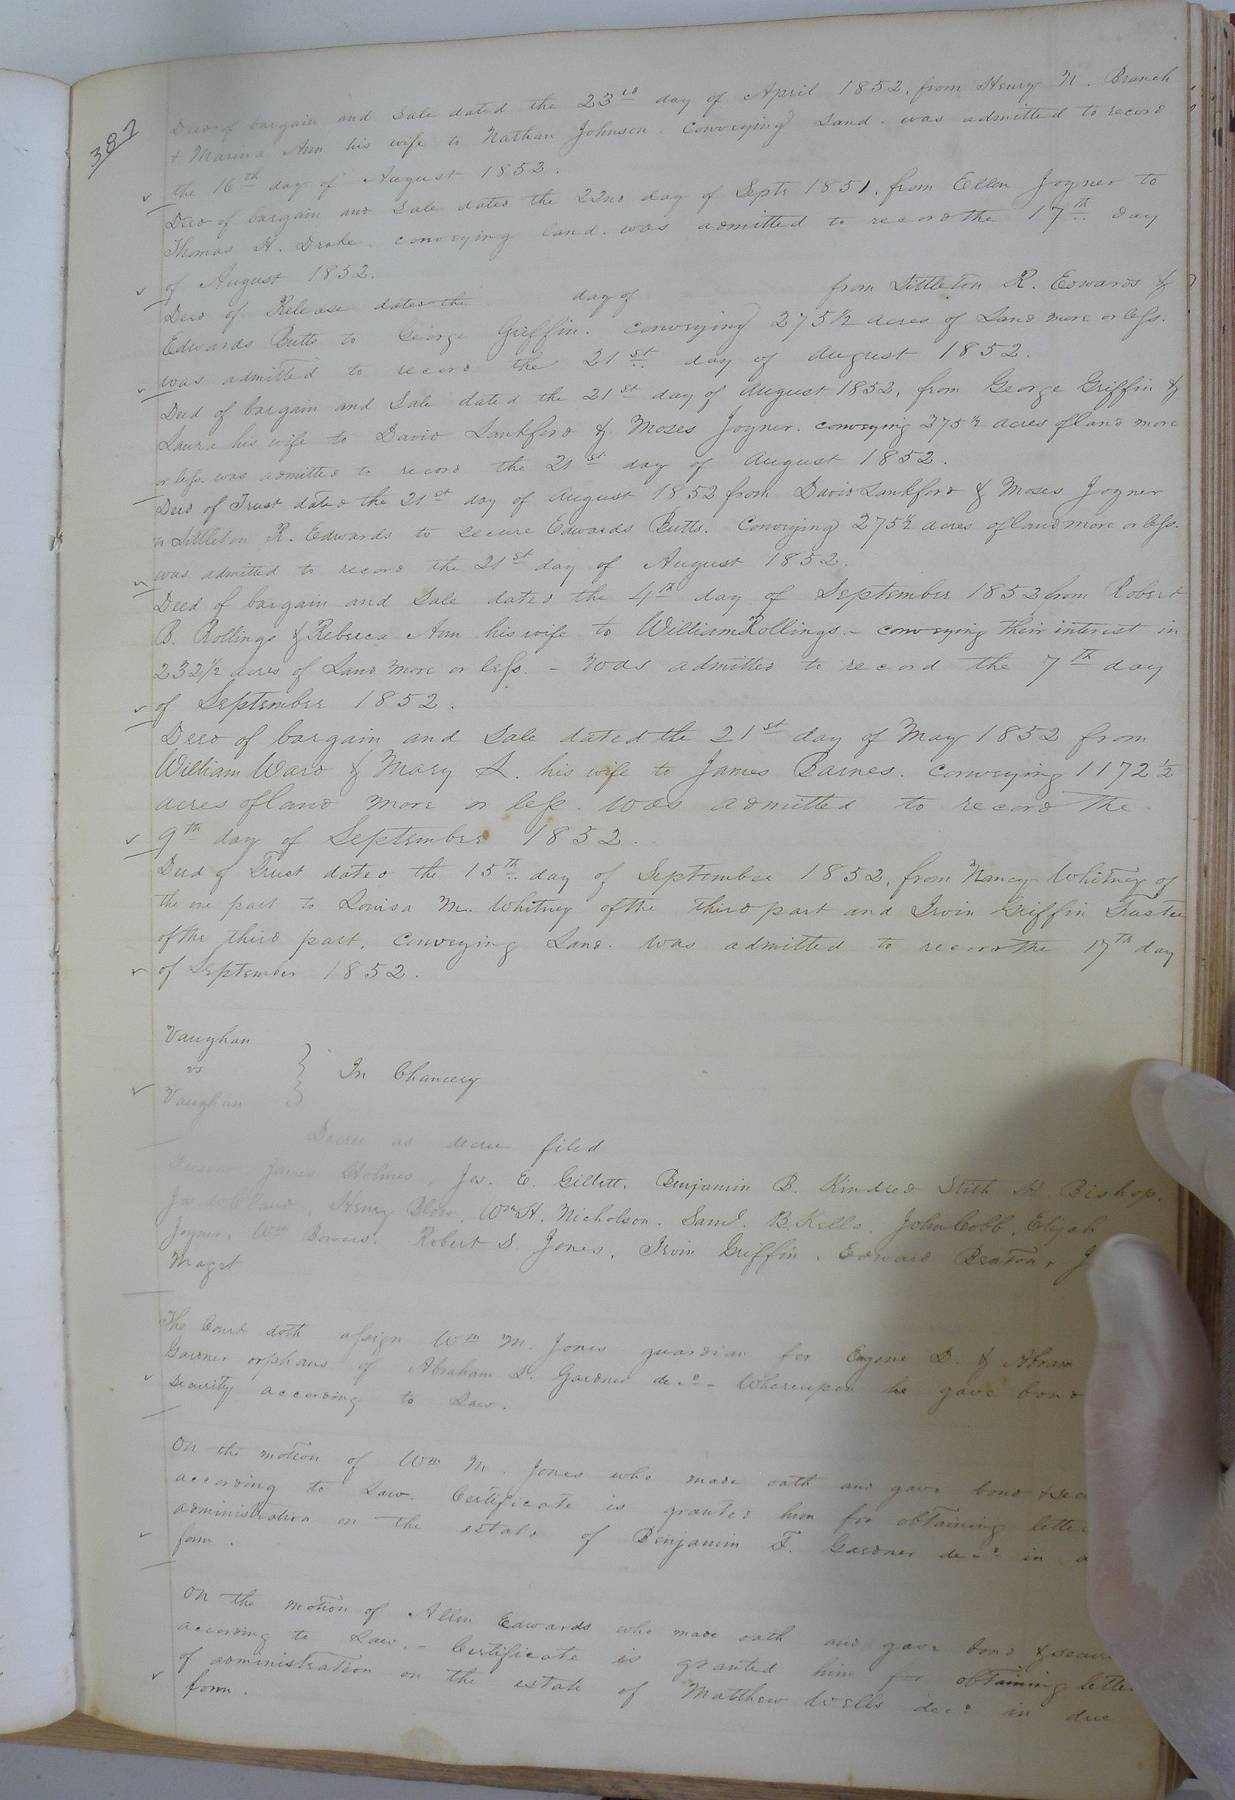 387
Deed of bargain and Sale dated the 23rd day of April 1852, from Henry N. Branch
& Marina Ann his wife to Nathan Johnson. Conveying Land. was admitted to record
the 16th day of August 1852.
Deed of bargain and Sale dated the 22nd day of Septr 1851, from Ellen Joyner to
Thomas H. Drake. conveying land. was admitted to record the 17th day
of August 1852.
Deed of Release dated the day of from Littleton R. Edwards &
Edwards Butts to George Griffin. conveying 275½ acres of Land more or less.
was admitted to record the 21st day of August 1852.
Deed of bargain and Sale dated the 21st day of August 1852, from George Griffin &
Laura his wife to David Lankford & Moses Joyner. conveying 275½ acres of land more
or less. was admitted to record the 21st day of August 1852.
Deed of Trust dated the 21st day of August 1852 from David Lankford & Moses Joyner
to Littleton R. Edwards to secure Edwards Butts. Conveying 275½ acres of land more or less.
was admitted to record the 21st day of August 1852.
Deed of bargain and Sale dated the 4th day of September 1852 from Robert
B. Rollings & Rebeca Ann his wife to William Rollings. - conveying their interest in
232½ acres of Land more or less. - was admitted to record the 7th day
of September 1852.
Deed of bargain and Sale dated the 21st day of May 1852 from
William Ward & Mary L. his wife to James Barnes. conveying 1172½
acres of land more or less. was admitted to record the
9th day of September 1852.
Deed of Trust dated the 15th day of September 1852, from Nancy Whitney of
the one part to Louisa M. Whitney of the third part and Irvin Griffin Trustee
of the third part, conveying Land. was admitted to record the 17th day
of September 1852.
Vaughan
vs } In Chancery
Vaughan
Decree as decree filed
James Holmes, Jas. E. Gillett, Benjamin B. Kindred Stith Bishop,
Henry Blow, Wm H. Nicholson. Saml. B. Kello. John Cobb, Elijah
Joyner, Wm Bowers. Robert S. Jones, Irvin Griffin, Edward Beaton, J
Maget
The Court doth assign Wm M. Jones guardian for Eugene D. & Abram
Gardner orphans of Abraham L. Gardner decd - Whereupon he gave bond
security according to Law.
On the motion of Wm M. Jones who made oath and gave bond & sec
according to Law. Certificate is granted him for obtaining lette
administration on the estate of Benjamin F. Gardner decd in
form.
On the motion of Allen Edwards who made oath and gave bond & secur
according to Law. - Certificate is granted him for obtaining lette
of administration on the estate of Matthew Wells decd in due
form.